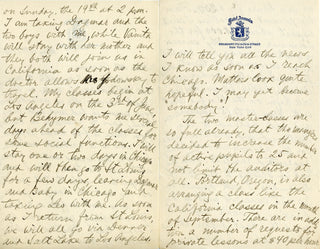 on Sunday, the 19th at 2 p.m.
I am taking Dagmar and the
two boys with me, while Vanita
will stay with her mother and
they both will join us in
California as soon as the
doctor allows
My classes begin at
Los Angeles on the 3rd of June
but Behymer wants me several
days ahead of the classes for
some social functions. I will
stay one or two days in Chicago
and will then go to St. Louis
for a few days leaving Dagmar
and baby in Chicago and
taking Leo with me. As soon
as I return from St. Louis,
we will all go via Denver
and Salt Lake to Los Angeles.
Hotel
New York City
I will tell you all the news
I know as soon as I reach
Chicago. Matters look quite
hopeful. I may yet become
"somebody".
The two master-classes are
so full already, that the manager
decided to increase the number
of active pupils to 25 and
not limit the auditors at
all. Portland, Oregon, is also
arranging a class like the
California classes in the month
of September. There are in addition
a number of requests for
private lessons at $40 per hour